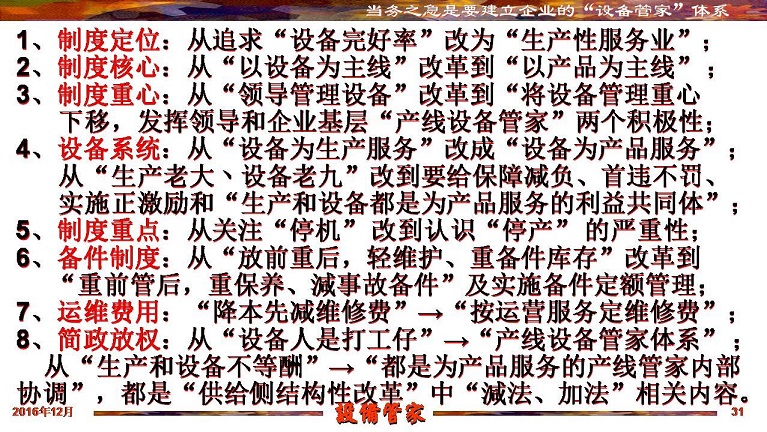 当务之急是要建立企业的“设备管家”体系
1、制度定位：从追求“设备完好率”改为“生产性服务业”；
2、制度核心：从“以设备为主线”改革到“以产品为主线”；
3、制度重心：从“领导管理设备”改革到“将设备管理重心
下移，发挥领导和企业基层“产线设备管家”两个积极性；
4、设备系统：从“设备为生产服务”改成“设备为产品服务”；
从“生产老大、设备老九”改到要给保障减负、首违不罚、
实施正激励和“生产和设备都是为产品服务的利益共同体”；
5、制度重点：从关注“停机”改到认识“停产” 的严重性；
6、备件制度：从“放前重后，轻维护、重备件库存”改革到
“重前管后，重保养、减事故备件”及实施备件定额管理；
7、运维费用：“降本先减维修费”→“按运营服务定维修费”；
8、简政放权：从“设备人是打工仔”→“产线设备管家体系”；
从“生产和设备不等酬”→“都是为产品服务的产线管家内部
协调”，都是“供给侧结构性改革”中“减法、加法”相关内容。
2016年12月 設備管家 31